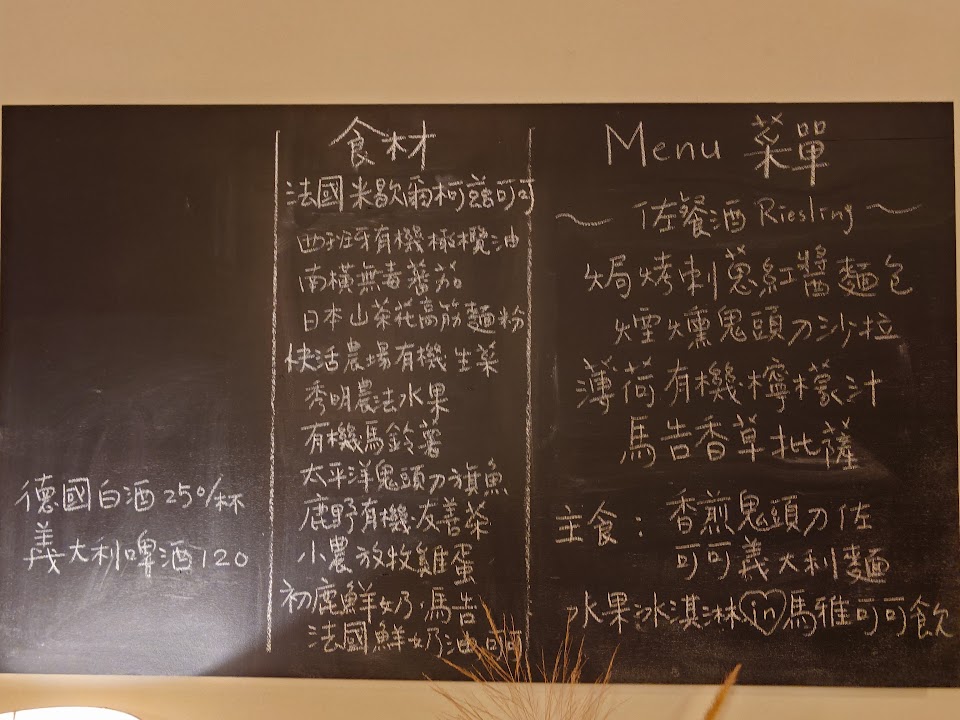 德國白酒250/杯
義大利啤酒120
食材
法國米歇爾柯茲可可
西班牙有機橄欖油
南橫無毒蕃茄
日本山茶花高筋麵粉
快活農場有機生菜
秀明農法水果
有機馬鈴薯
太平洋鬼頭刀旗魚
鹿野有機·友善茶
小農放牧雞蛋
初鹿鮮奶·馬告
法國鮮奶油·可可
Menu 菜單
～ 佐餐酒 Riesling ～
焗烤刺蔥紅醬麵包
煙燻鬼頭刀沙拉
薄荷有機檸檬汁
馬告香草批薩
主食：香煎鬼頭刀佐
可可義大利麵
水果冰淇淋in馬雅可可飲